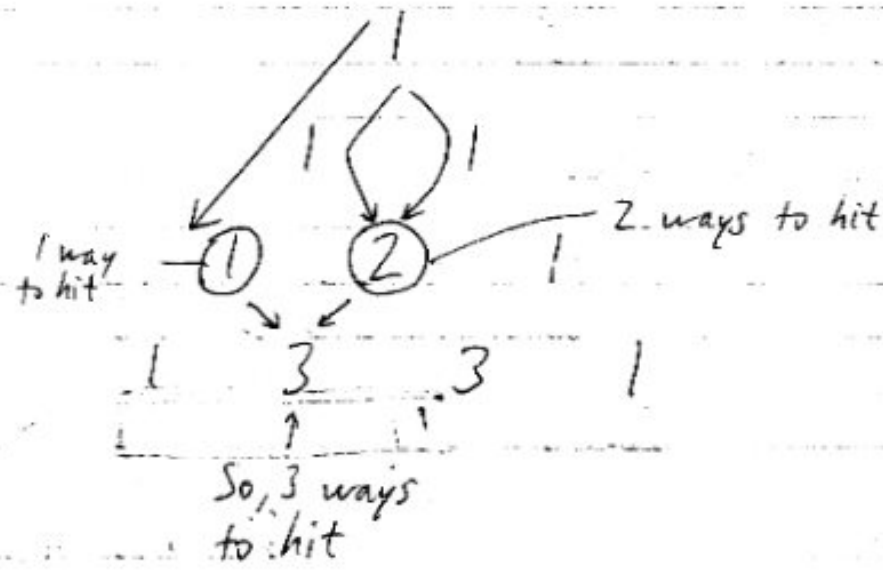 1
1 1
1 way
to hit
1 2 1
2 ways to hit
1 3 3 1
So, 3 ways
to hit